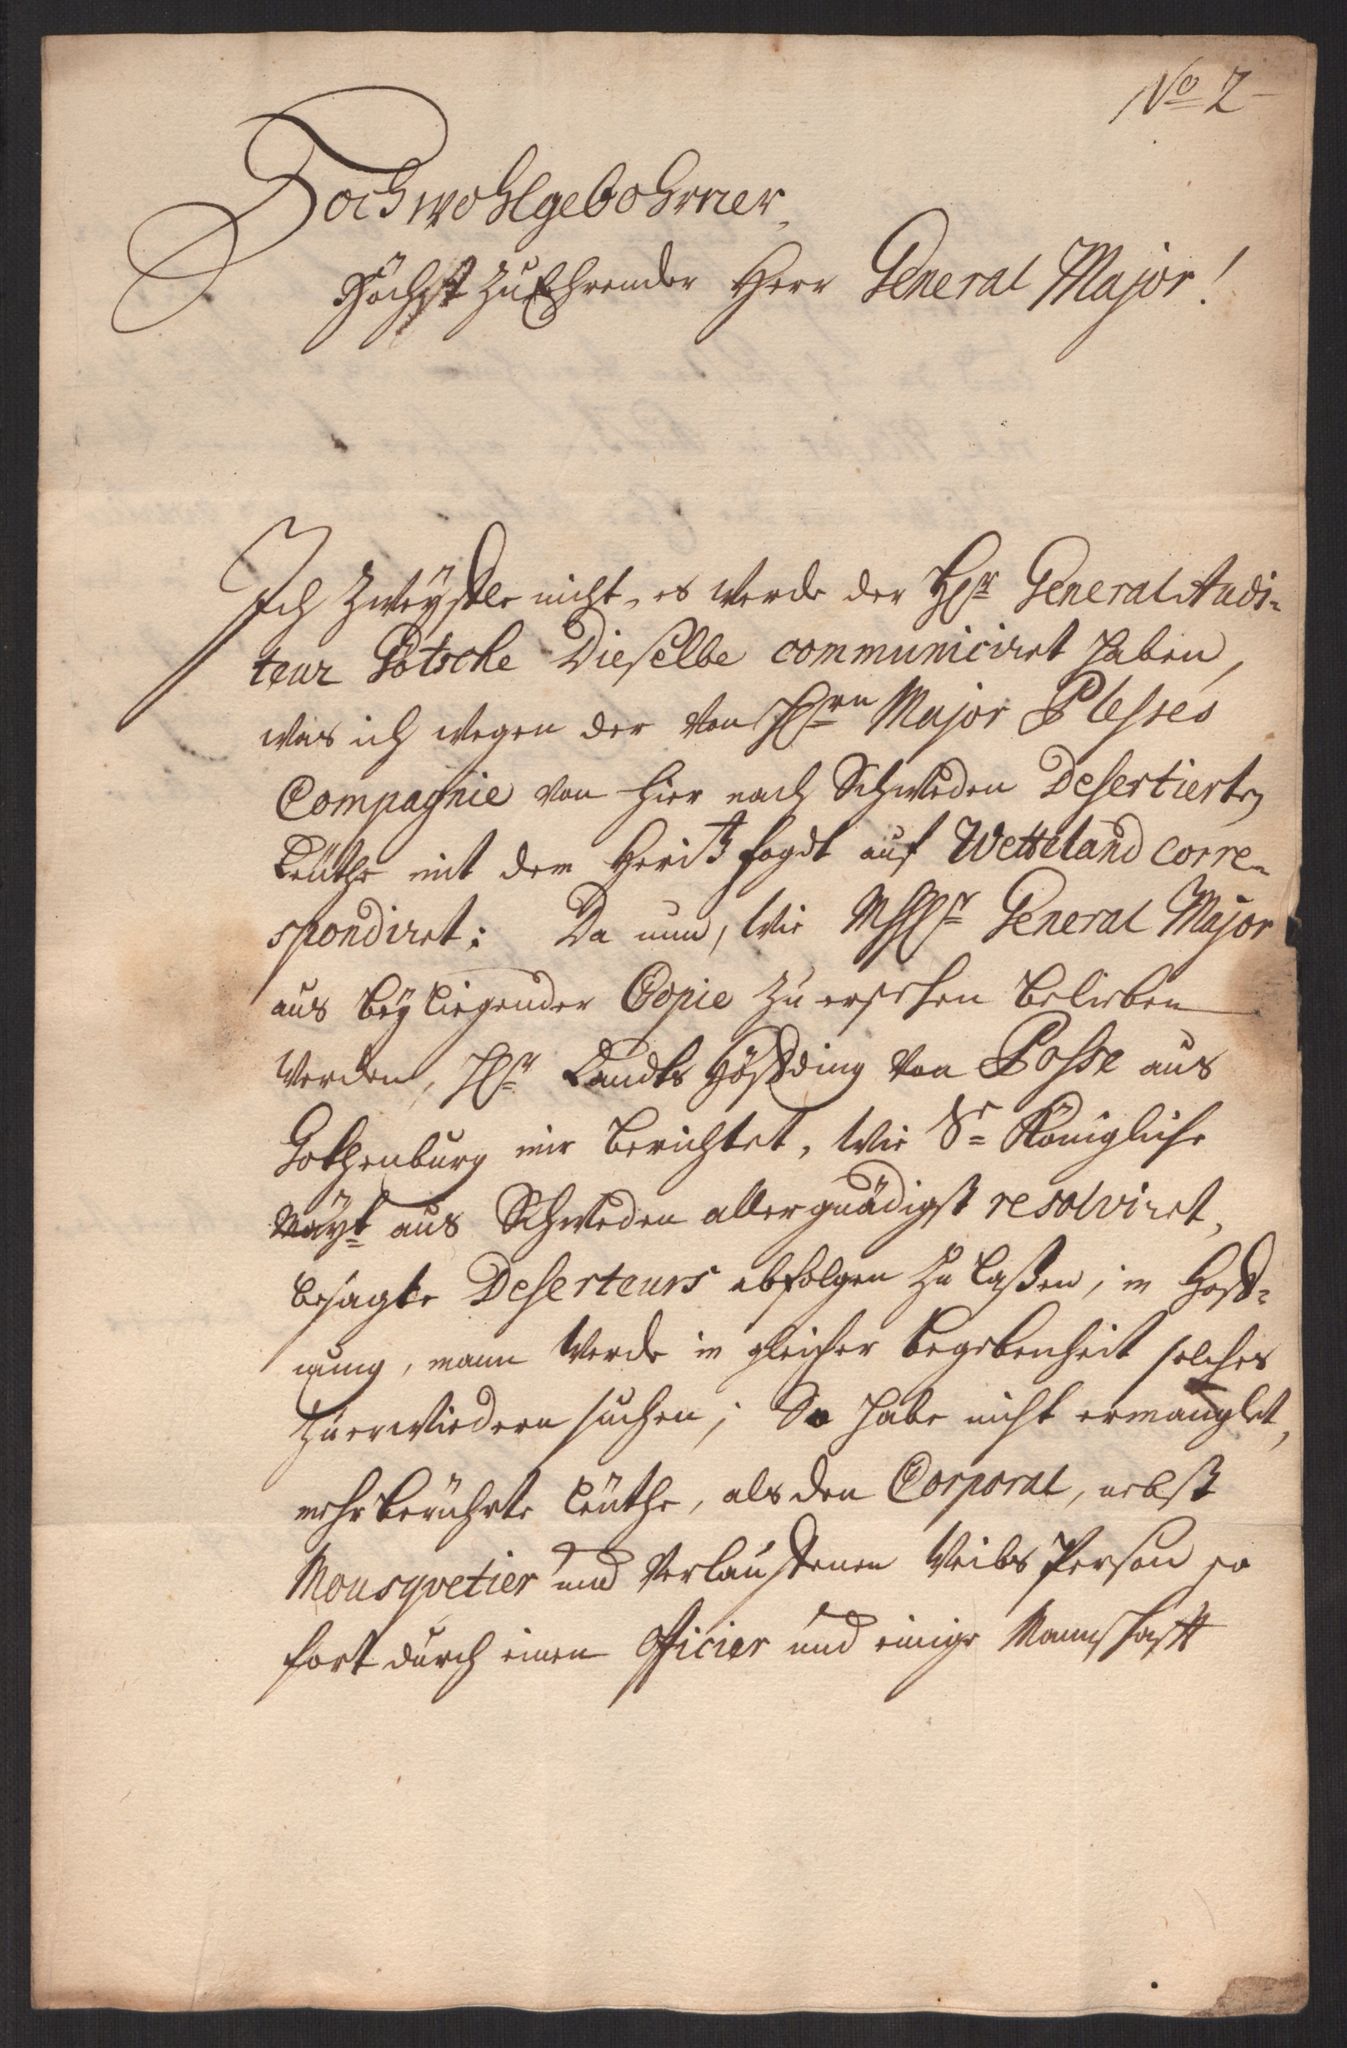 No 2
Hochwohlgebohrner,
Höchst zuEhrender Herr General Major!
Ich zweyffle nicht, es werde der Hr General Audi-
teur Pötsche Dieselbe communiciret haben,
was ich wegen der von Hrn Major Plesses
Compagnie von hier nach Schweden Desertierten
Leüthe mit dem Heritzfogdt auf Wetteland corre-
spondiret: Da nun, wie MhHr General Major
aus beyliegender Copie zu ersehen belieben
werden, Hr Landts Höffding von Posse aus
Gothenburg mir berichtet, wie Sr Königliche
Mayt aus Schweden allergnädigst resolviret,
besagte Deserteurs abfolgen zu laßen, in Hoff-
nung, mann werde in gleicher begebenheit solches
zu erwiedern suchen; So habe nicht ermanglet,
mehr berührte Leüthe, als den Corporal, nebst
Mousqvetier und verlauffenen Weibs Person so
fort durch einen Officier und einige Mannschafft